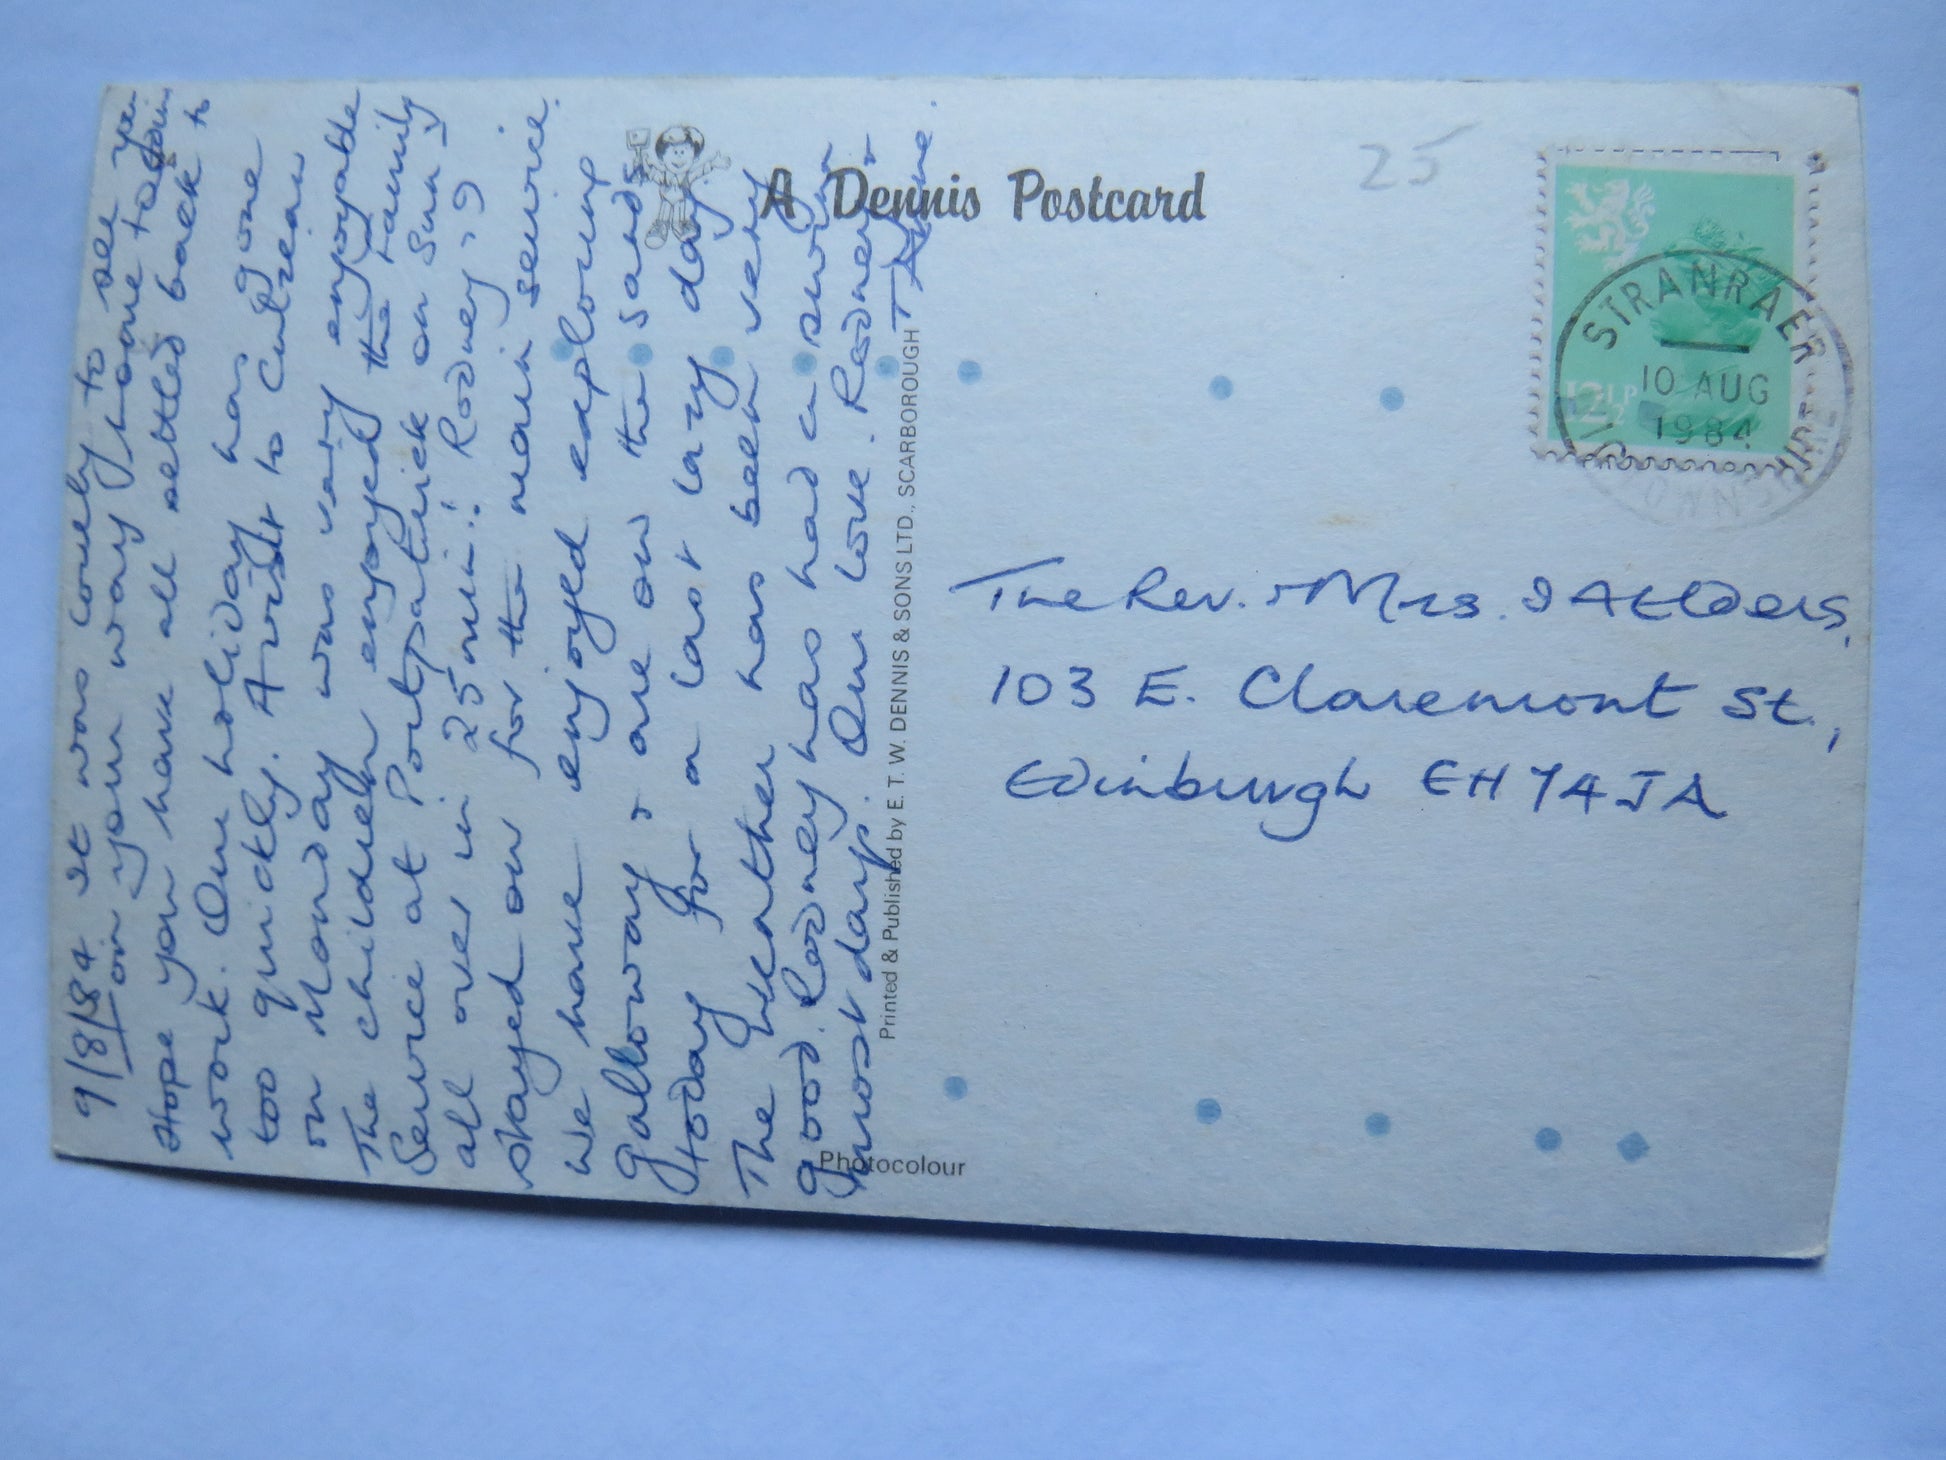 9/8/84 It was lovely to see you
on your way home to Edin
Hope you have all settled back to
work. Our holiday has gone
too quickly. A visit to Culzean
on Monday was very enjoyable
The children enjoyed the Family
Service at Portpatrick on Sun
all over in 25 min!! Rodney & I
stayed on for the main service.
We have enjoyed exploring
Galloway & are on the sand
today for a last lazy day.
The weather has been very
good. Rodney has had a swim
most days. Our love. Rodney &
Anne.
A Dennis Postcard
Printed & Published by E. T. W. DENNIS & SONS LTD., SCARBOROUGH
Photocolour
25
12½P
STRANRAER
10 AUG
1984
WIGTOWNSHIRE
The Rev. & Mrs.
103 E. Claremont St.,
Edinburgh EH7 4JA